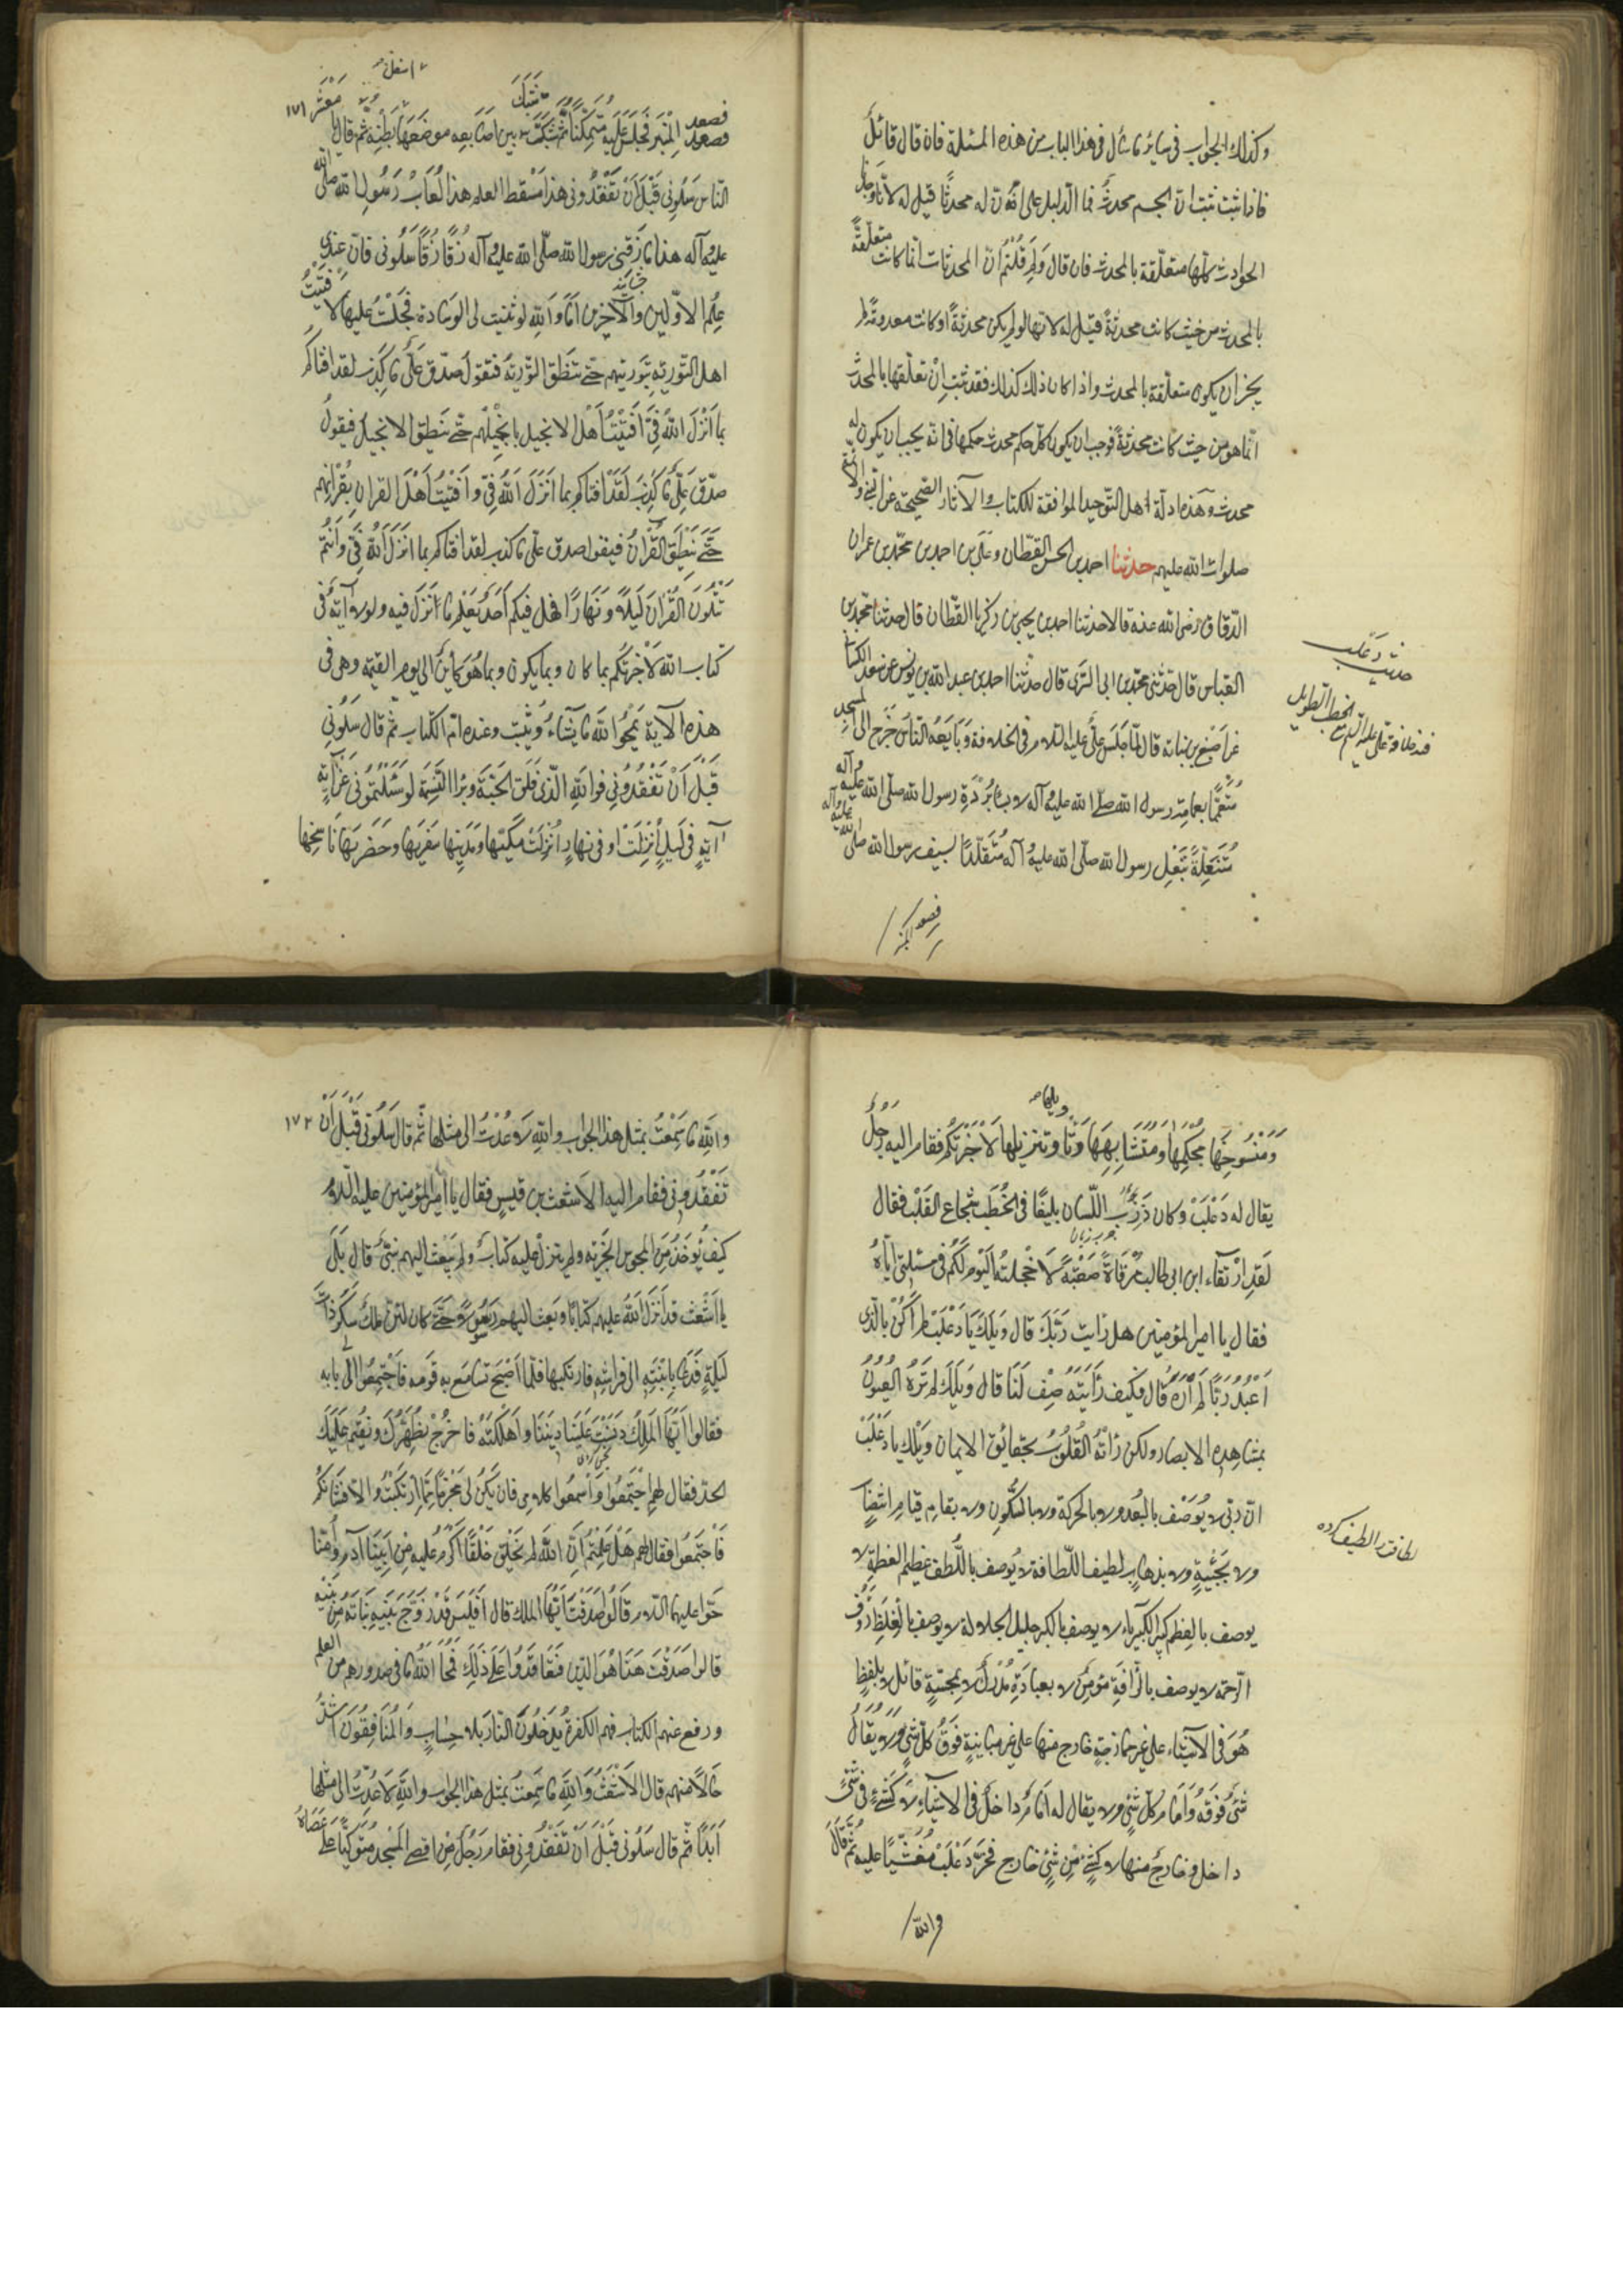 وكذلك الجواب في ساير ما سأل في هذا الباب من هذه المسئلة فان قال قائل
فاذا ثبت ان الجسم محدث فما الدليل على ان له محدثا قيل له لانا وجدنا
الحوادث كلها متعلقة بالمحدث فان قال ولم قلتم ان المحدثات انما كانت متعلقة
بالمحدث من حيث كانت محدثة قيل له لانها لو لم يكن محدثة او كانت معدومة لم
يجز ان يكون متعلقة بالمحدث واذا كان ذلك كذلك فقد ثبت ان تعلقها بالمحدث
انما هو من حيث كانت محدثة فوجب ان يكون كل حكم محدث حكمها في انه يجب ان يكون له
محدث وهذه ادلة اهل التوحيد الموافقة للكتاب والآثار الصحيحة عن النبي والائمة
صلوات الله عليهم حدثنا احمد بن الحسن القطان وعلي بن احمد بن محمد بن عمران
الدقاق رضي الله عنه قالا حدثنا احمد بن يحيى بن زكريا القطان قال حدثنا محمد بن
العباس قال حدثني محمد بن ابي السري قال حدثنا احمد بن عبد الله بن يونس عن سعد الكناني
عن اصبغ بن نباته قال لما جلس علي عليه السلام في الخلافة وبايعه الناس خرج الى المسجد
متعمما بعمامة رسول الله صلى الله عليه وآله لابسا بردة رسول الله صلى الله عليه وآله
متنعلا بنعل رسول الله صلى الله عليه وآله متقلدا بسيف رسول الله صلى الله عليه وآله
فصعد المنبر
حديث دعلب
الخطب الطويل
١٧١
فصعد المنبر فجلس عليه متمكنا ثم شبك بين اصابعه موضعها بطنه ثم قال يا معشر
الناس سلوني قبل أن تفقدوني هذا سقط العلم هذا لعاب رسول الله صلى الله
عليه وآله هذا ما زقني رسول الله صلى الله عليه وآله زقا زقا سلوني فان عندي
علم الاولين والآخرين اما والله لو ثنيت لي الوسادة فجلست عليها لافتيت
اهل التورية بتوريتهم حتى تنطق التورية فتقول صدق علي ما كذب لقد افتاكم
بما أنزل الله في افتيت أهل الانجيل بانجيلهم حتى ينطق الانجيل فيقول
صدق علي ما كذب لقد افتاكم بما انزل الله في وافتيت أهل القران بقرانهم
حتى ينطق القران فيقول صدق علي ما كذب لقد افتاكم بما انزل الله في وأنتم
تتلون القران ليلا ونهارا فهل فيكم أحد يعلم ما انزل فيه ولولا آية في
كتاب الله لاخبرتكم بما كان وبما يكون وبما هو كائن الى يوم القيمة وهي في
هذه الآية يمحو الله ما يشاء ويثبت وعنده ام الكتاب ثم قال سلوني
قبل أن تفقدوني فوالله الذي فلق الحبة وبرأ النسمة لو سئلتموني عن آية
آية في ليل أنزلت او في نهار انزلت مكيتها ومدنيتها سفريها وحضريها ناسخها
ومنسوخها محكمها ومتشابهها وتأويلها وتنزيلها لاخبرتكم فقام اليه رجل
يقال له دعلب وكان ذرب اللسان بليغا في الخطب شجاع القلب فقال
لقد ارتقاء ابن ابي طالب مرقاة صعبة لاخجلنه اليوم لكم في مسئلتي اياه
فقال يا امير المؤمنين هل رايت ربك قال ويلك يا دعلب لم اكن بالذي
اعبد ربا لم اره قال فكيف رأيته صف لنا قال ويلك لم تره العيون
بمشاهدة الابصار ولكن رأته القلوب بحقائق الايمان ويلك يا دعلب
ان ربي لا يوصف بالبعد ولا بالحركة ولا بالسكون ولا بقيام قيام انتصاب
ولا بجيئة ولا بذهاب لطيف اللطافة لا يوصف باللطف عظيم العظمة لا
يوصف بالعظم كبير الكبرياء لا يوصف بالكبر جليل الجلالة لا يوصف بالغلظ رؤف
الرحمة لا يوصف بالرافة مؤمن لا بعبادة مدرك لا بمجسة قائل لا بلفظ
هو في الاشياء على غير ممازجة خارج منها على غير مباينة فوق كل شي ولا يقال
شئ فوقه وأمام كل شئ ولا يقال له امام داخل في الاشياء لا كشئ في شئ
داخل وخارج منها لا كشئ من شئ خارج فخر دعلب مغشيا عليه ثم قال
والله
لطافت را لطيف كرده
١٧٢
والله ما سمعت بمثل هذا الجواب والله لا عدت الى مثلها ثم قال سلوني قبل أن
تفقدوني فقام اليه الاشعث بن قيس فقال يا امير المؤمنين عليه السلام
كيف يؤخذ من المجوس الجزية ولم ينزل عليه كتاب ولم يبعث اليهم نبي قال بلى
يا اشعث قد أنزل الله عليهم كتابا وبعث اليهم رسولا حتى كان لهم ملك سكر ذات
ليلة فدعا بابنته الى فراشه فارتكبها فلما اصبح تسامع به قومه فاجتمعوا الى بابه
فقالوا ايها الملك دنست علينا ديننا وأهلكته فاخرج نطهرك ونقيم عليك
الحد فقال لهم اجتمعوا واسمعوا كلامي فان يكن لي مخرج مما ارتكبت والا فشانكم
فاجتمعوا فقال لهم هل علمتم أن الله لم يخلق خلقا اكرم عليه من ابينا آدم وأمنا
حوا عليها السلام قالوا صدقت ايها الملك قال افليس قد زوج بنيه بناته من بنيه
قالوا صدقت هذا هو الدين فتعاقدوا على ذلك فمحا الله ما في صدورهم من العلم
ورفع عنهم الكتاب فهم الكفرة يدخلون النار بلا حساب والمنافقون اشد
حالا منهم قال الاشعث والله ما سمعت بمثل هذا الجواب والله لا عدت الى مثلها
ابدا ثم قال سلوني قبل أن تفقدوني فقام رجل من اقصى المسجد متوكيا على عصاه